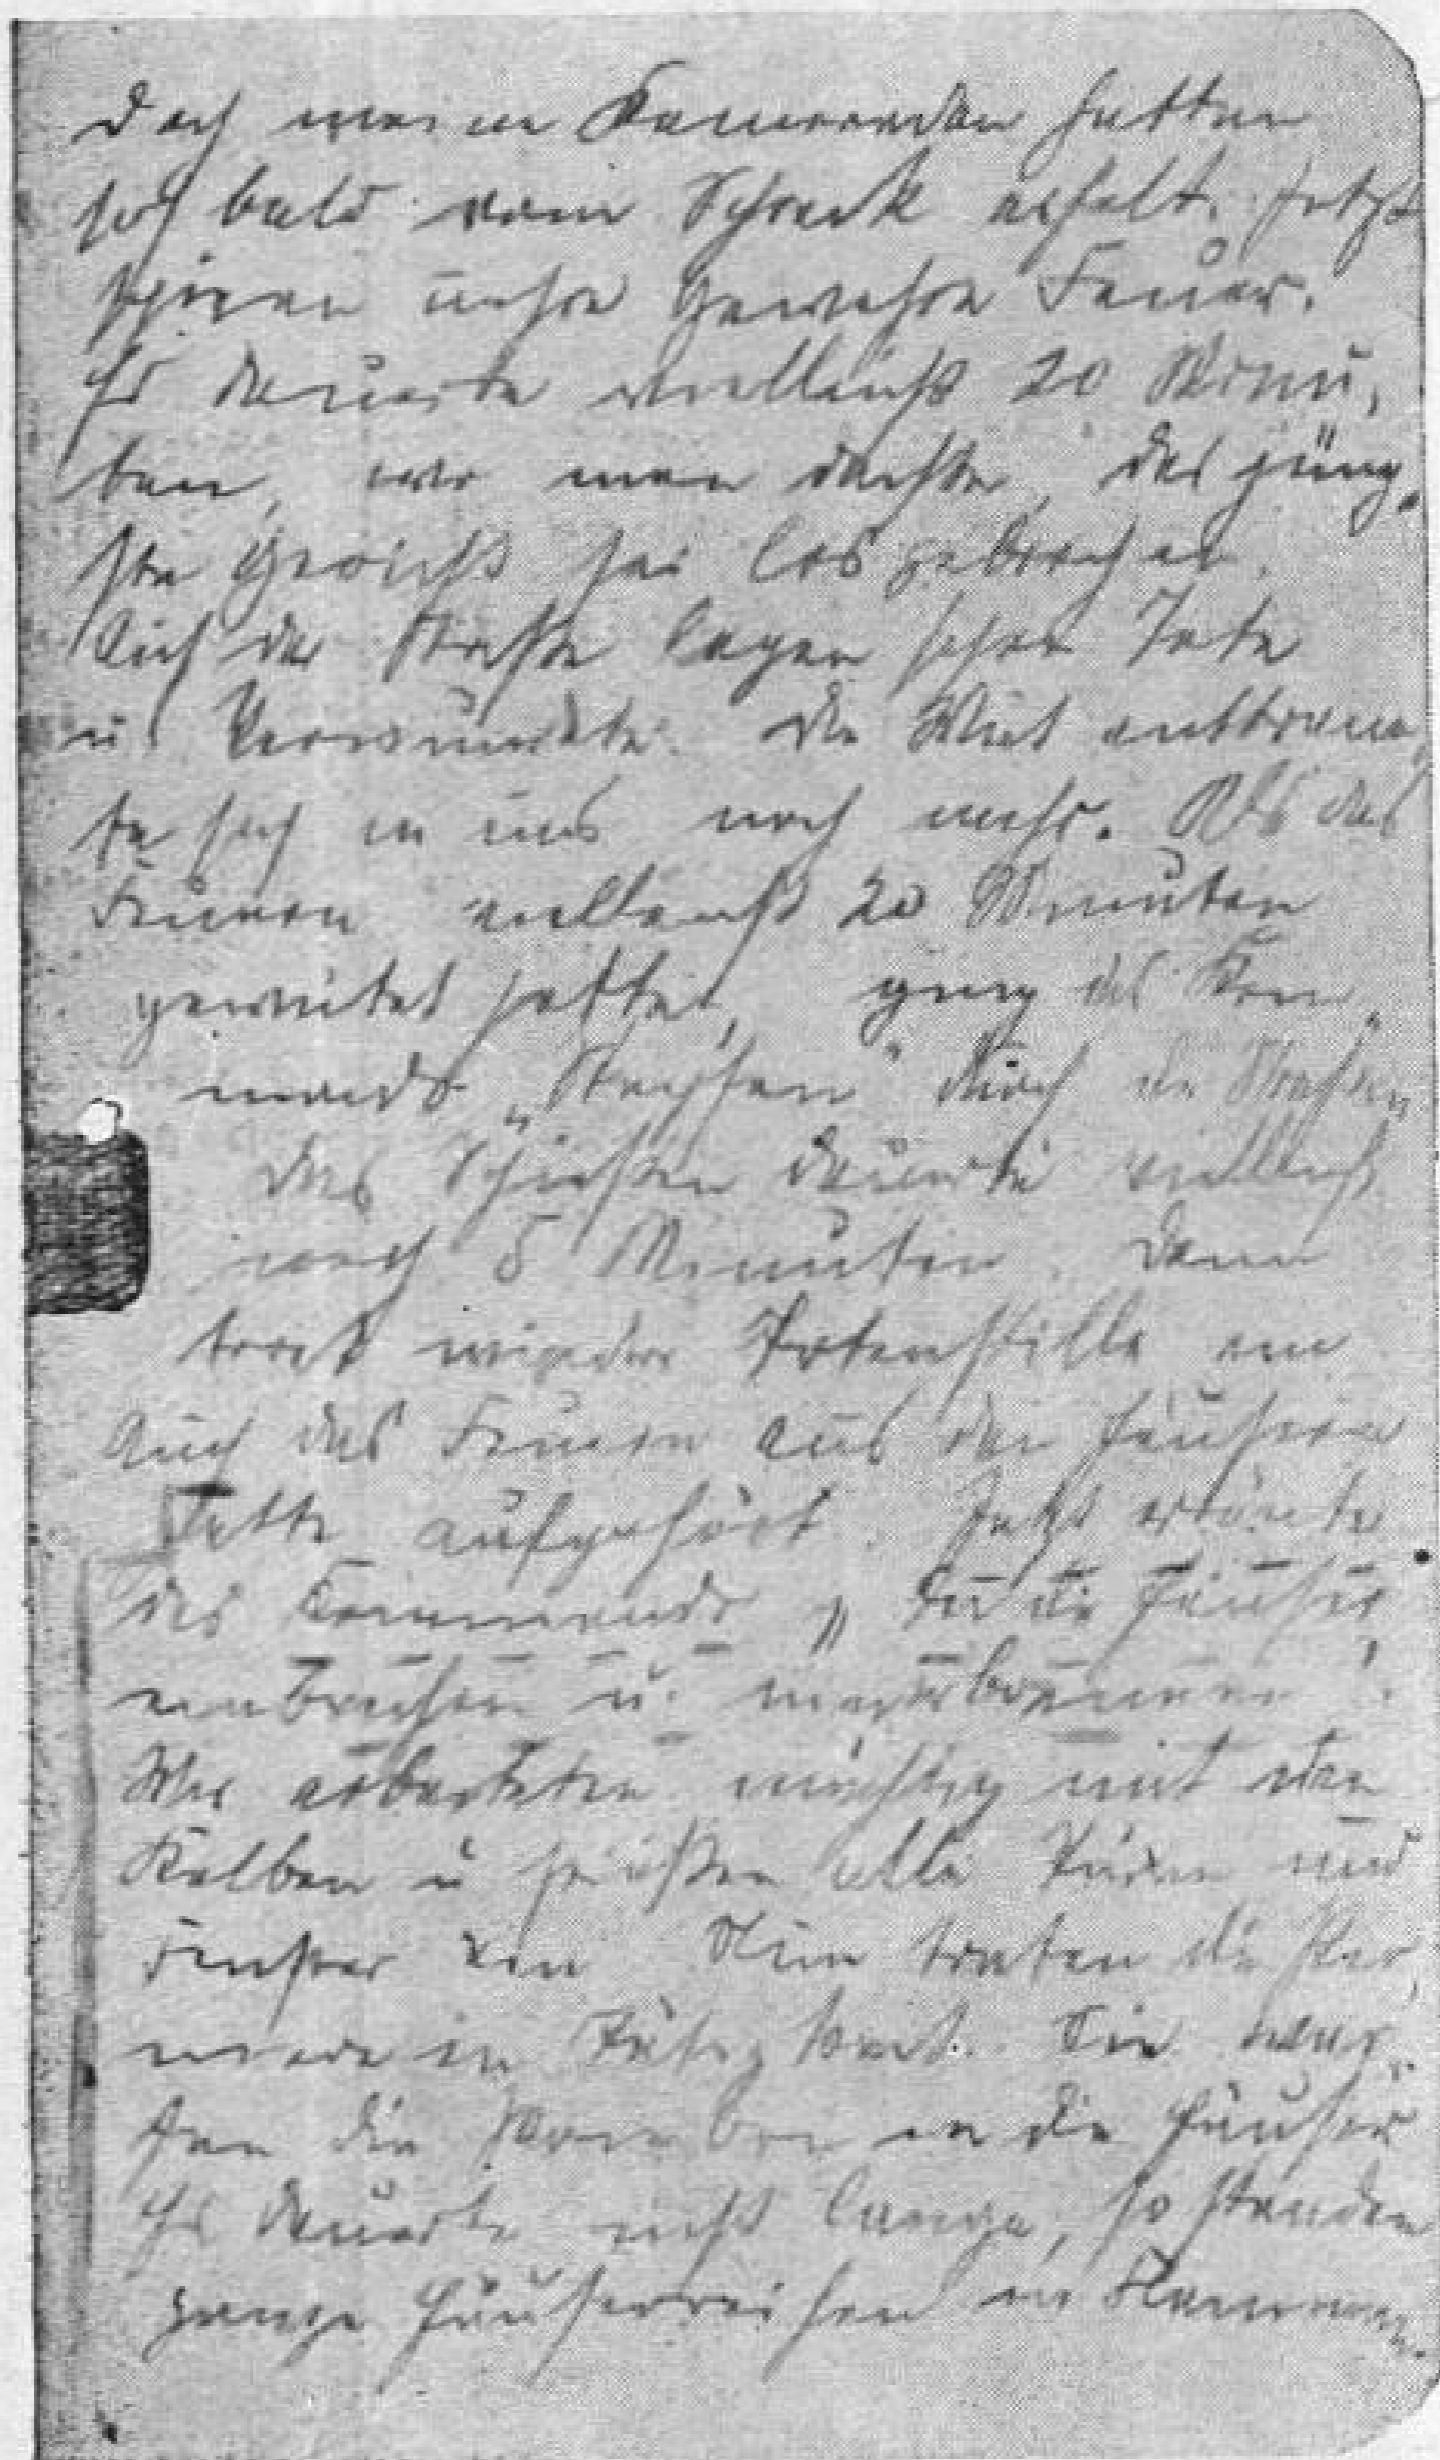 Doch meine Kameraden hatten
sich bald vom Schreck erholt. Jetzt
spieen unsre Gewehre Feuer.
Es dauerte vielleicht 20 Minu,
ten, wo man dachte, das jüng„
ste Gericht sei losgebrochen.
Auf der Straße lagen schon Tote
u. Verwundete. Die Wut entbrann„
te sich in uns noch mehr. Als das
Feuern vielleicht 20 Minuten
gewütet hatte, ging das Kom„
mando „Stopfen“ durch die Straßen,
das Schießen dauerte vielleicht
noch 5 Minuten. Dann
trat wieder Totenstille ein
Auch das Feuern aus den Häusern
hatte aufgehört. Jetzt ertönte
das Kommando „In die Häuser
einbrechen u. niederbrennen!
Wir arbeiteten mächtig mit den
Kolben u. stießen alle Türen und
Fenster ein Nun traten die
in Tätigkeit. Sie war„
fen die Bomben in die Häuser
Es dauerte nicht lange, so standen
ganze Häuserreihen in Flammen.